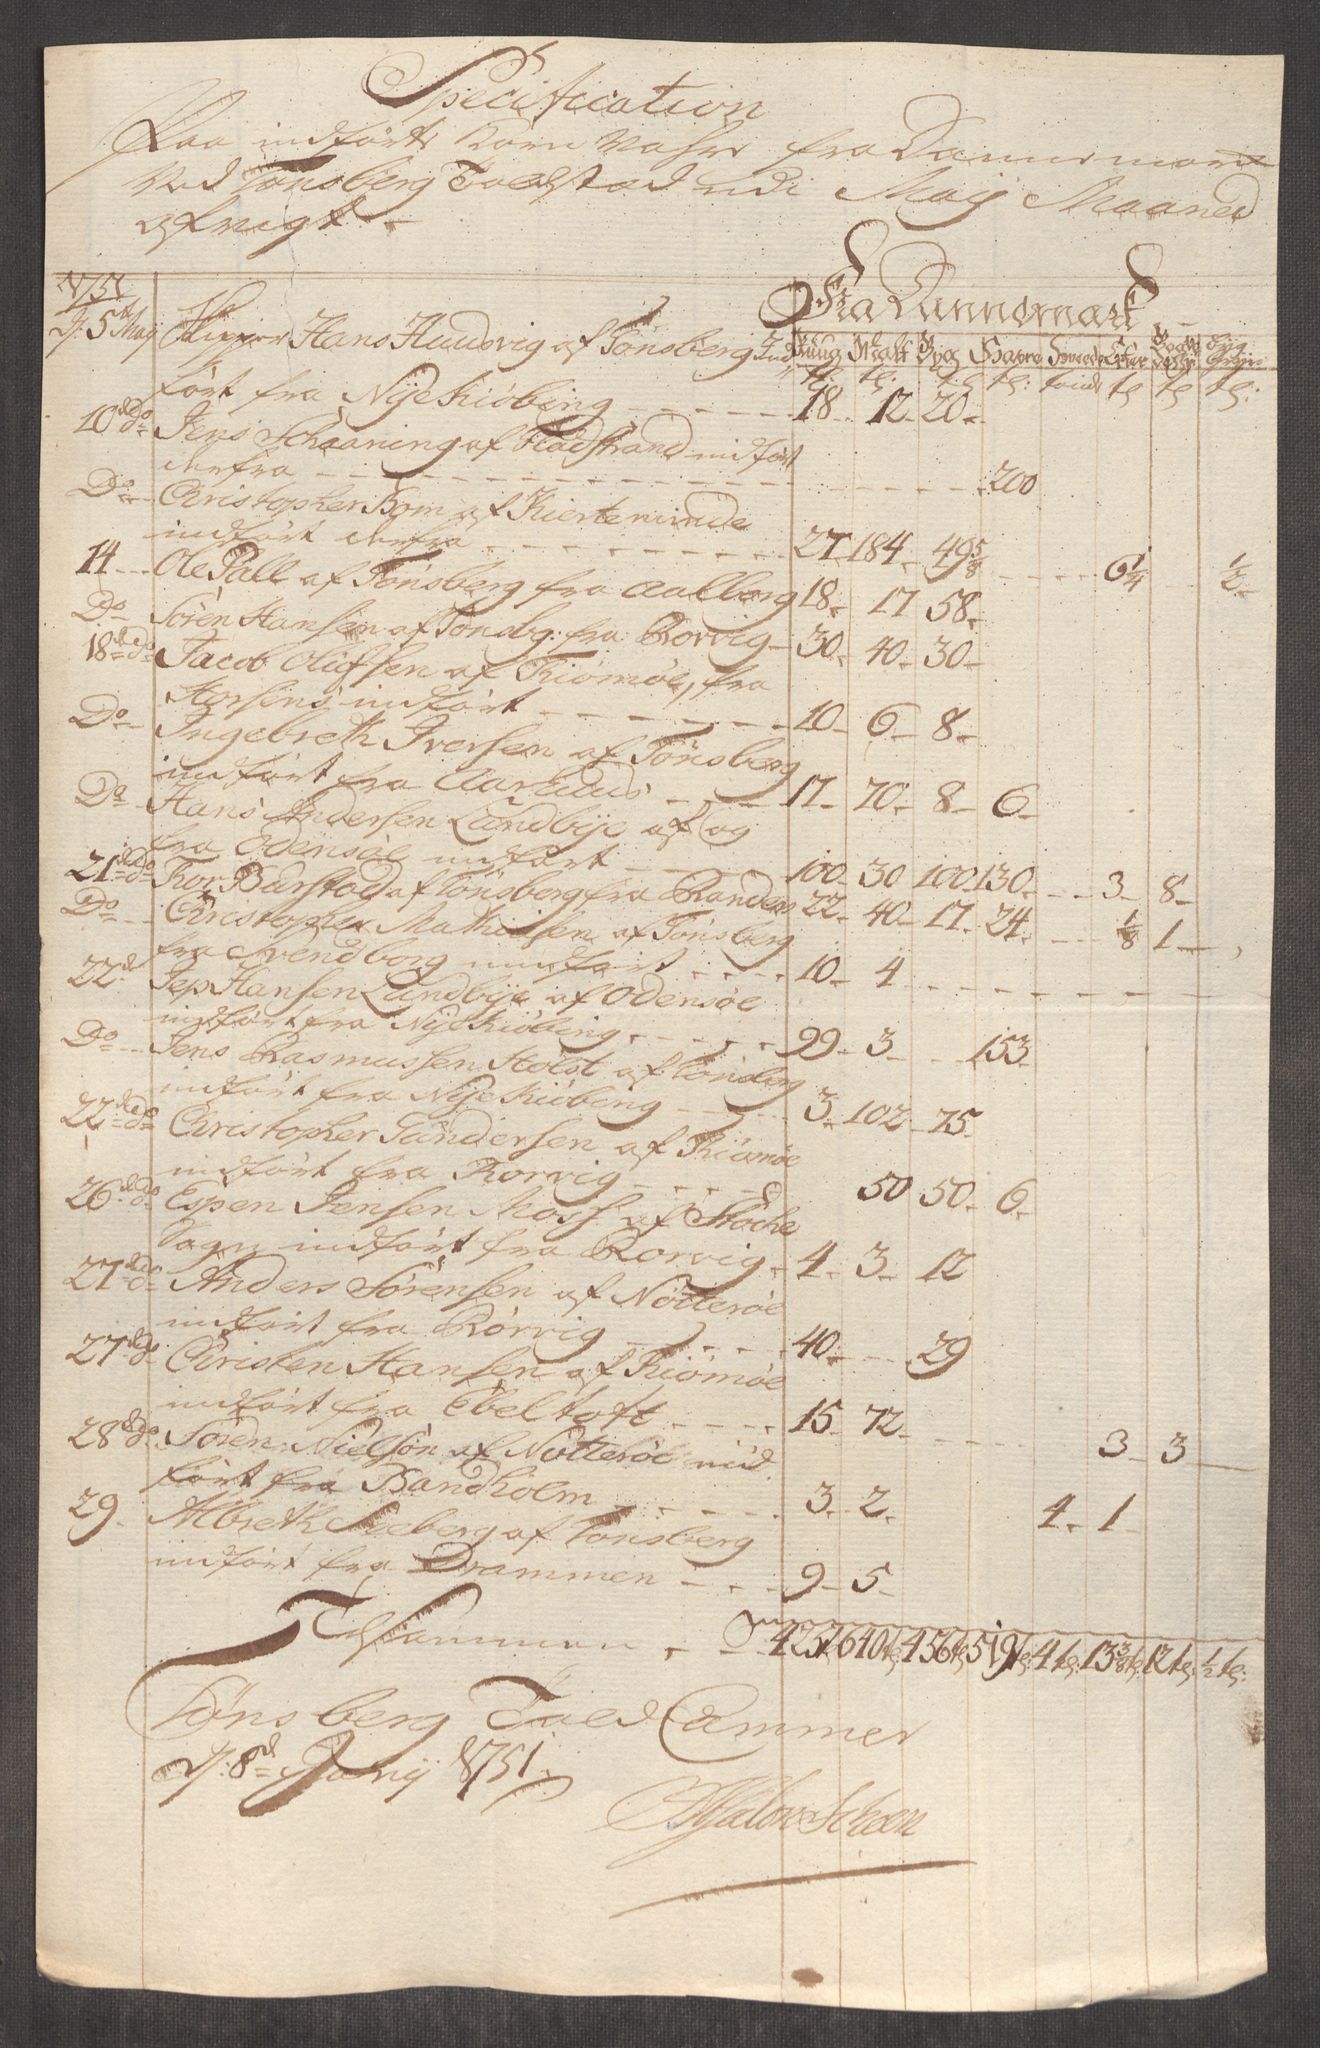 Specification
Paa indførte Korn Vahre fra Dannemarc
Ved Tønsberg Toldsted udi Maij Maaned
afvigt.
1751
Fra Dannemark
d: 5te Maij Skipper Hans Hansvig af Tønsberg Ind
Rug Malt Byg Hafre
tr: tr: tr: tr: tr tr tr:
ført fra Nye Kiøbing 18 12 20
10de do Jens Schaaning af Fladstrand indført
derfra 200
Do Christopher Bom af Kierteminde
indført derfra 27 184 49 5/8 6 1/4 1/2
14 Ole Pall af Tønsberg fra Aalborg 18 17 58
Do Søren Hansen af Tønsbg: fra Rorvig 30 40 30
18de do Jacob Olufsen af Kiømøe, fra
Horsens indført 10 6 8
Do Ingebreth Iversen af Tønsberg
indført fra Aarhuus 17 70 8 6
Do Hans Andersen Lundbye af og
fra Odensøe indført 100 30 100 130 3 8
21de do Thor Burstad af Tønsberg fra Randers 22 40 17 24 1/8 1
Do Christopher Mathiesen af Tønsberg
fra Svendborg indført 10 4
22d Jep Hansen Lundbye af Odensøe
indført fra Nye Kiøbing 99 3 153
Do Jens Rasmussen Holst af Tønsbg
indført fra Nye Kiøbing 3 102 75
22de do Christopher Gundersen af Kiømøe
indført fra Rorvig 50 50 6
26de do Espen Jensen Moss af Stocke
Sogn indført fra Rorvig 4 3 12
27de do Anders Sørensen af Nøtterøe
indført fra Rørvig 40 29
27de do Christen Hansen af Kiømøe
indført fra Ebeltoft 15 72 3 3
28de do Søren Nielsøn af Nøtterøe ind
ført fra Bandholm 3 2 4 1
29 Albreth Seeberg af Tønsberg
indført fra Drammen 9 5
Tilsammen 425 tr 640 tr 456 tr 519 tr: 4 tr: 13 3/8 tr: 12 tr: 1/2 tr:
Tønsberg Told Cammer
d: 8de Junij 1751